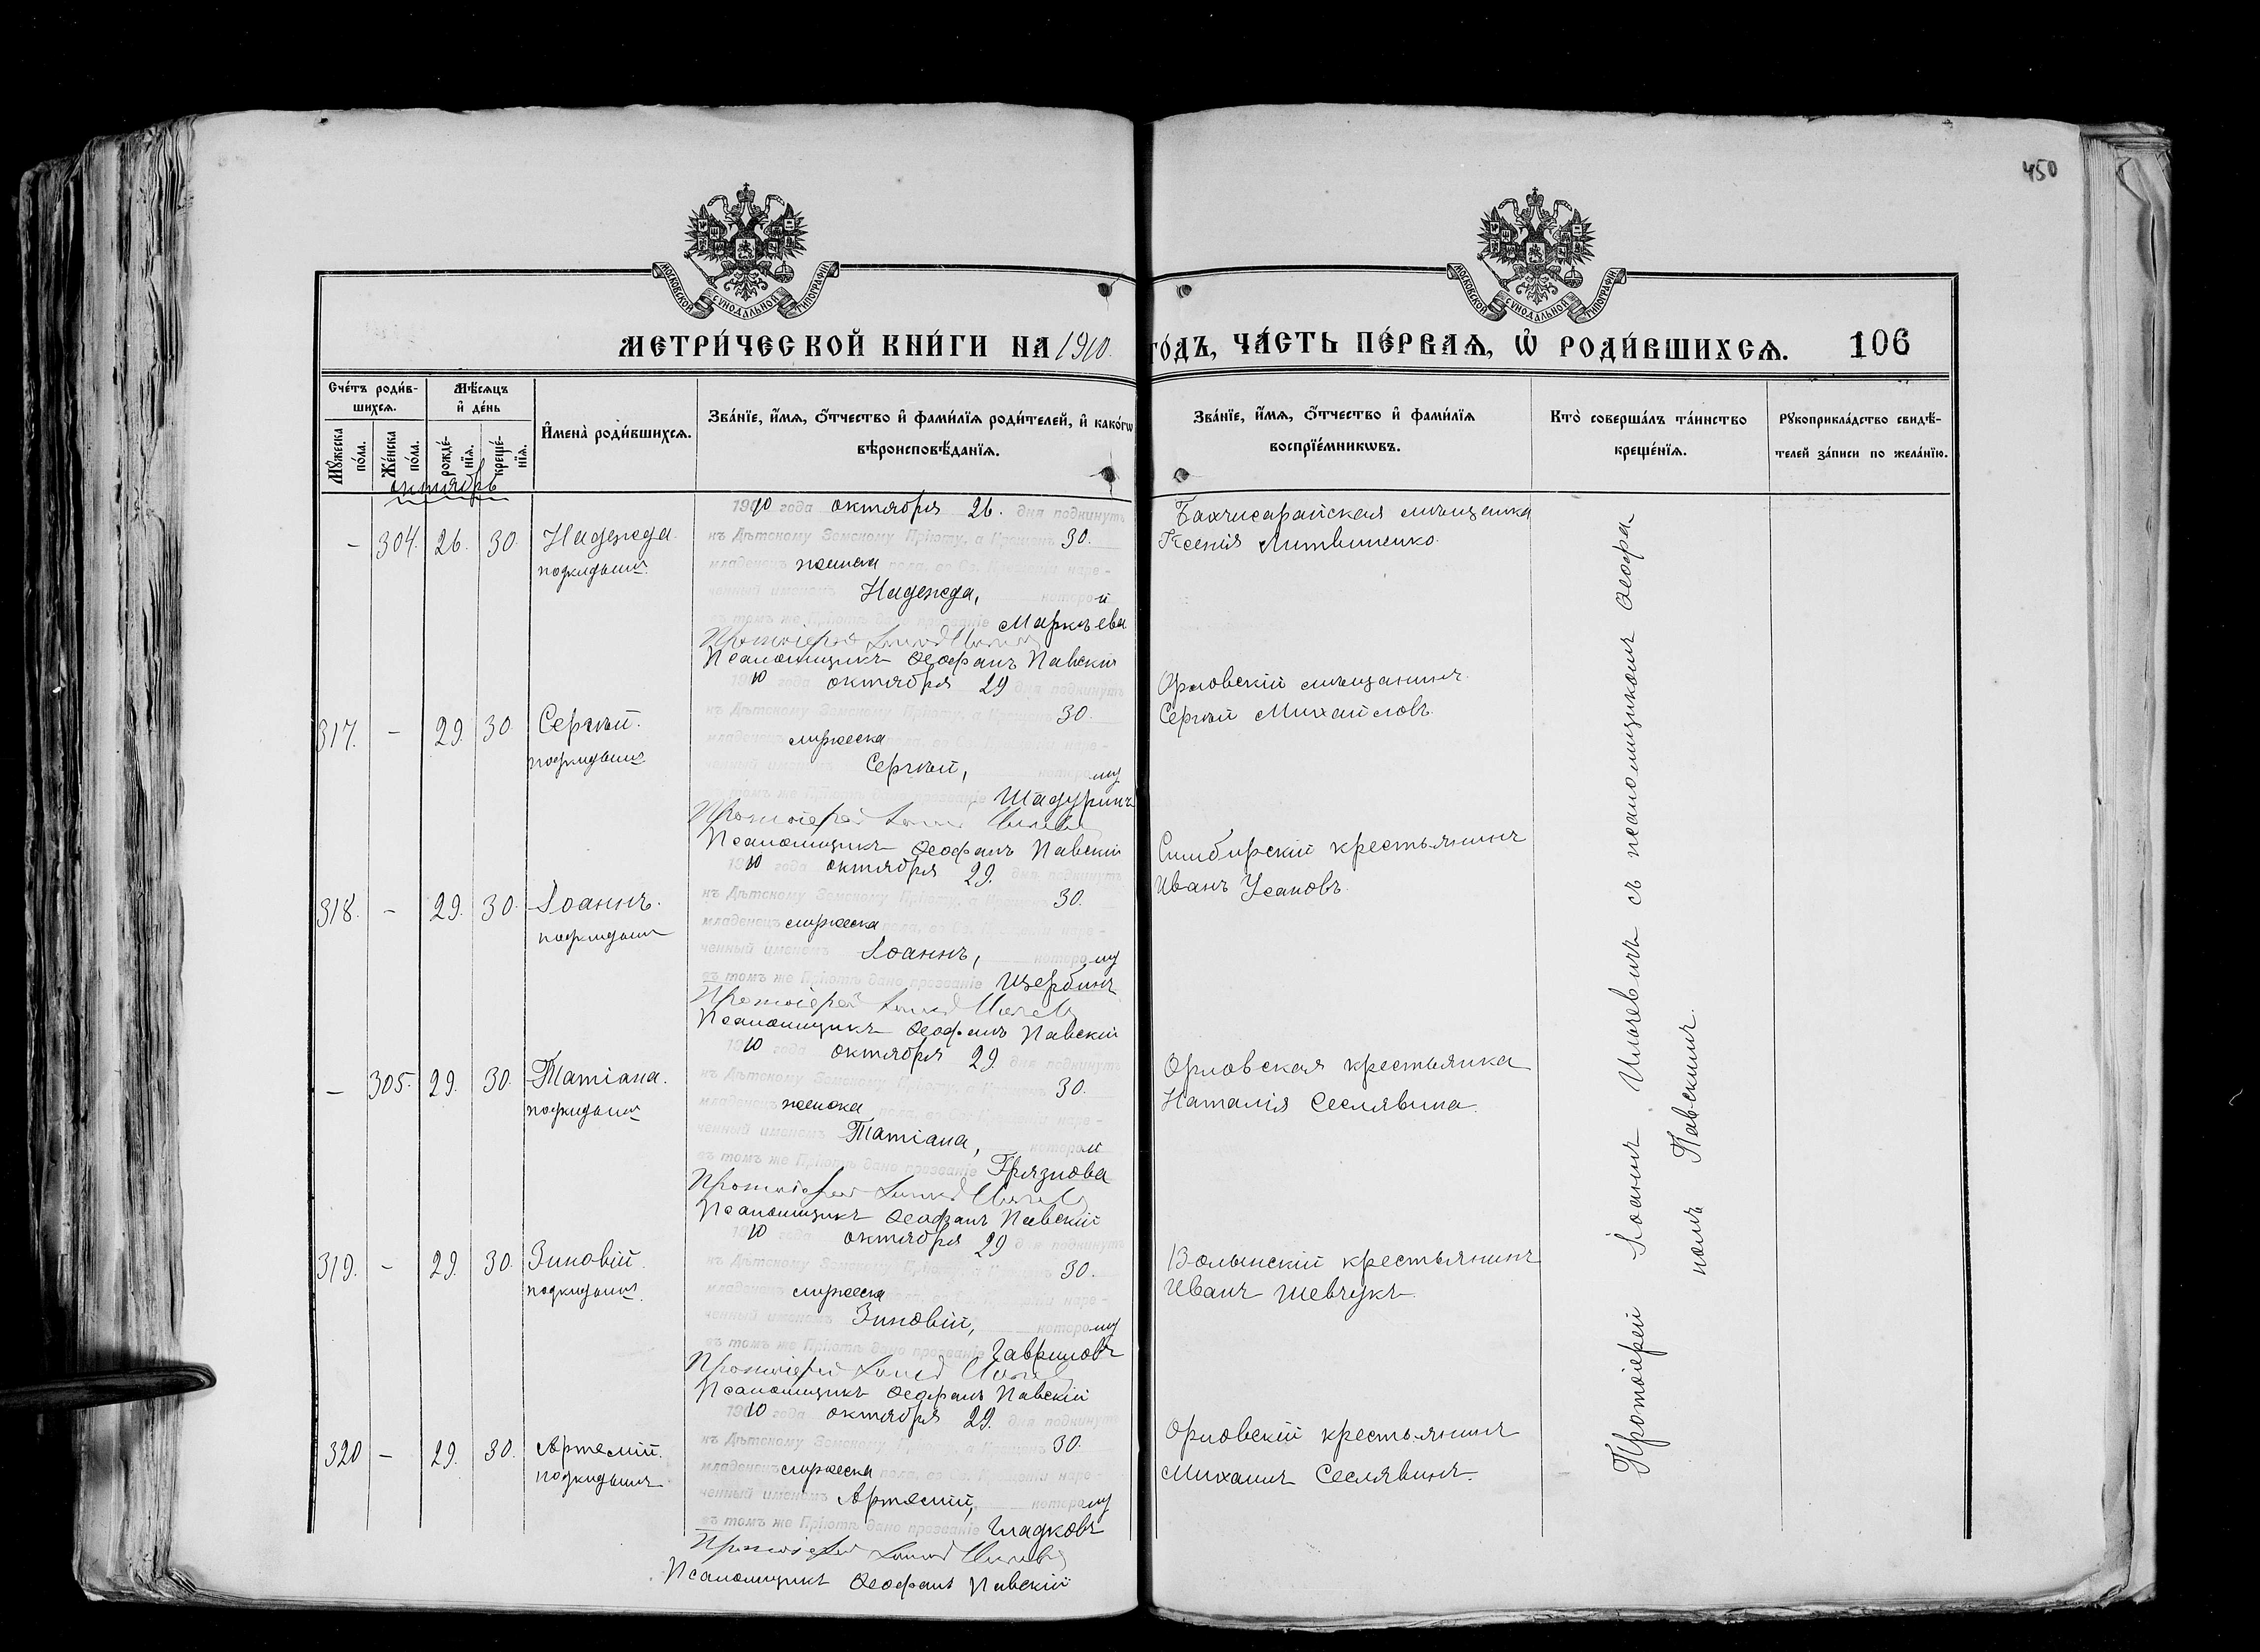 450
МОСКОВСКОЙ СУНОДАЛЬНОЙ ТИПОГРАФІИ
МОСКОВСКОЙ СУНОДАЛЬНОЙ ТИПОГРАФІИ
МЕТРИ́ЧЕСКОЙ КНИ́ГИ НА 1910 ГО́ДЪ, ЧА́СТЬ ПЕ́РВАѦ, Ѡ҆ РОДИ́ВШИХСѦ. 106
Сче́тъ роди́в-
шихсѧ.
Мꙋ́жеска по́ла.
Же́нска по́ла.
Мѣ́сѧцъ
и҆ де́нь
рожде́-
нїѧ.
креще́-
нїѧ.
И҆мена̀ роди́вшихсѧ.
Зва́нїе, и҆́мѧ, ѻ҆́тчество и҆ фами́лїѧ роди́телей, и҆ како́гѡ
вѣроисповѣ́данїѧ.
Зва́нїе, и҆́мѧ, ѻ҆́тчество и҆ фами́лїѧ
воспрїе́мникѡвъ.
Кто̀ соверша́лъ та́инство
креще́нїѧ.
Рꙋкоприкла́дство свидѣ́-
телей за́писи по жела́нїю.
октябрь
— 304. 26. 30 Надежда
подкидышъ
1910 года октября 26. дня подкинутъ
къ Дѣтскому Земскому Пріюту, а Крещенъ 30.
младенецъ женска пола, въ Св. наре-
ченный именемъ Надежда, которой
въ томъ же Пріютѣ дано прозваніе Маркѣева
Протоіерей
Псаломщикъ Ѳеофанъ Павскій
Бахчисарайская мѣщанка
Ксенія Литвиненко.
317. — 29. 30. Сергѣй.
подкидышъ
1910 года октября 29 дня подкинутъ
къ Дѣтскому Земскому Пріюту, 30.
младенецъ мужеска пола, въ Св. наре-
ченный именемъ Сергѣй, которому
въ томъ же Пріютѣ дано прозваніе Шадуринъ
Протоіерей
Псаломщикъ Ѳеофанъ Павскій
Орловскій мѣщанинъ
Сергѣй Михайловъ.
318. — 29. 30. Іоаннъ.
подкидышъ
1910 года октября 29. дня подкинутъ
къ Дѣтскому Земскому Пріюту, 30.
младенецъ мужеска пола, въ Св. наре-
ченный именемъ Іоаннъ, которому
въ томъ же Пріютѣ дано прозваніе Щербинъ
Протоіерей
Псаломщикъ Ѳеофанъ Павскій
Симбирскій крестьянинъ
Иванъ Усановъ.
— 305. 29. 30. Татіана.
подкидышъ
1910 года октября 29. дня подкинутъ
къ Дѣтскому Земскому Пріюту, 30.
младенецъ женска
ченный именемъ Татіана, которой
въ томъ же Пріютѣ дано прозваніе Грязнова
Протоіерей
Псаломщикъ Ѳеофанъ Павскій
Орловская крестьянка
Наталія Сеслявина.
319. — 29. 30. Зиновій.
подкидышъ
1910 года октября 29 дня подкинутъ
къ Дѣтскому Земскому 30.
младенецъ мужеска наре-
ченный именемъ Зиновій, которому
въ томъ же Пріютѣ дано прозваніе Гавриловъ
Протоіерей
Псаломщикъ Ѳеофанъ Павскій
Волынскій крестьянинъ
Иванъ Шевчукъ.
320 — 29. 30. Артемій.
подкидышъ
1910 года октября 29. дня подкинутъ
къ Дѣтскому Земскому 30.
младенецъ мужеска пола, въ Св. наре-
ченный именемъ Артемій, которому
въ томъ же Пріютѣ дано прозваніе Гладковъ
Протоіерей
Псаломщикъ Ѳеофанъ Павскій
Орловскій крестьянинъ
Михаилъ Сеслявинъ.
Протоіерей Іоаннъ съ псаломщикомъ Ѳеофа-
номъ Павскимъ.